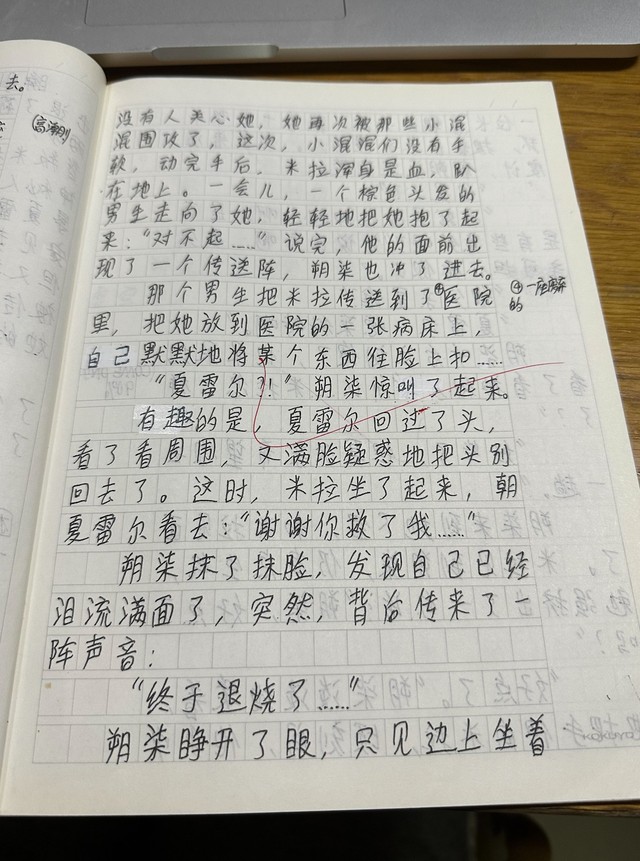 去。
高潮别
没有人关心她，她再次被那些小混
混围攻了，这次，小混混们没有手
软，动完手后，米拉浑身是血，趴
在地上。一会儿，一个棕色头发的
男生走向了她，轻轻地把她抱了起
来：“对不起……”说完，他的面前出
现了一个传送阵，朔柒也冲了进去。
那个男生把米拉传送到了④医院
④一座废弃
的
里，把她放到医院的一张病床上，
自己默默地将某个东西往脸上扣……
“夏雷尔?!”朔柒惊叫了起来。
有趣的是，夏雷尔回过了头，
看了看周围，又满脸疑惑地把头别
回去了。这时，米拉坐了起来，朝
夏雷尔看去：“谢谢你救了我……”
朔柒抹了抹脸，发现自己已经
泪流满面了，突然，背后传来了一
阵声音：
“终于退烧了……”
朔柒睁开了眼，只见边上坐着